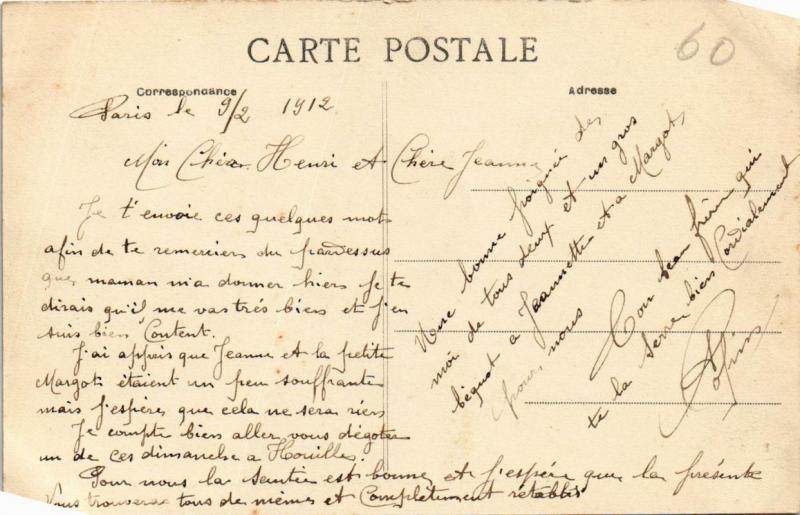 CARTE POSTALE
60
Correspondance
Adresse
Paris le 9/2 1912
Mon Cher Henri et Chère Jeanne
Je t'envoie ces quelques mots
afin de te remerciers du pardessus
que maman m'a donner hiers je te
dirais qu'il me vas trés biens et j'en
suis bien Content.
J'ai appris que Jeanne et la petite
Margots étaient un peu souffrante
mais j'espère que cela ne sera riens
Je compte biens aller vous dégoter
un de ces dimanche a Houilles.
Pour nous la santée est bonne et j'espère que la présente
Vous trouveras tous de mêmes et Complètement rétablis
Une bonne poignée des
moi de tous deux et un gros
bécot a Jeannette et a Margots
pour nous
Ton beau frère qui
te la serre biens Cordialement